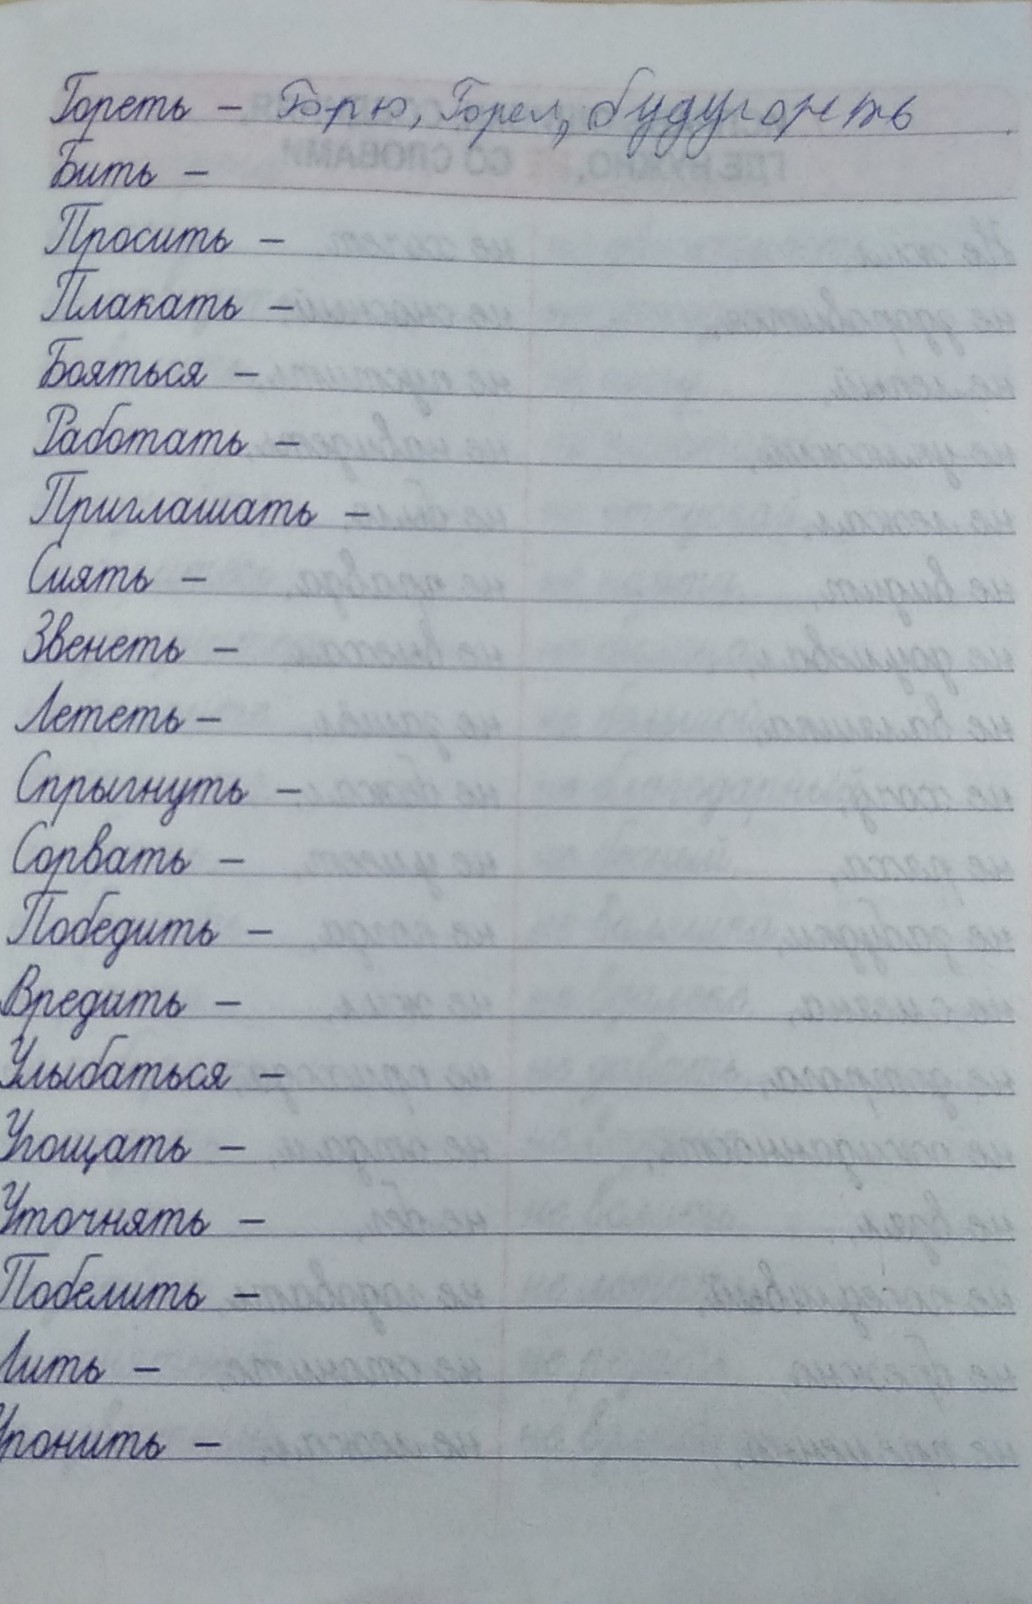 Гореть – Горю, Горел, будугореть
Бить –
Просить –
Плакать –
Бояться –
Работать –
Приглашать –
Сиять –
Звенеть –
Лететь –
Спрыгнуть –
Сорвать –
Победить –
Вредить –
Улыбаться –
Угощать –
Уточнять –
Побелить –
Лить –
Уронить –